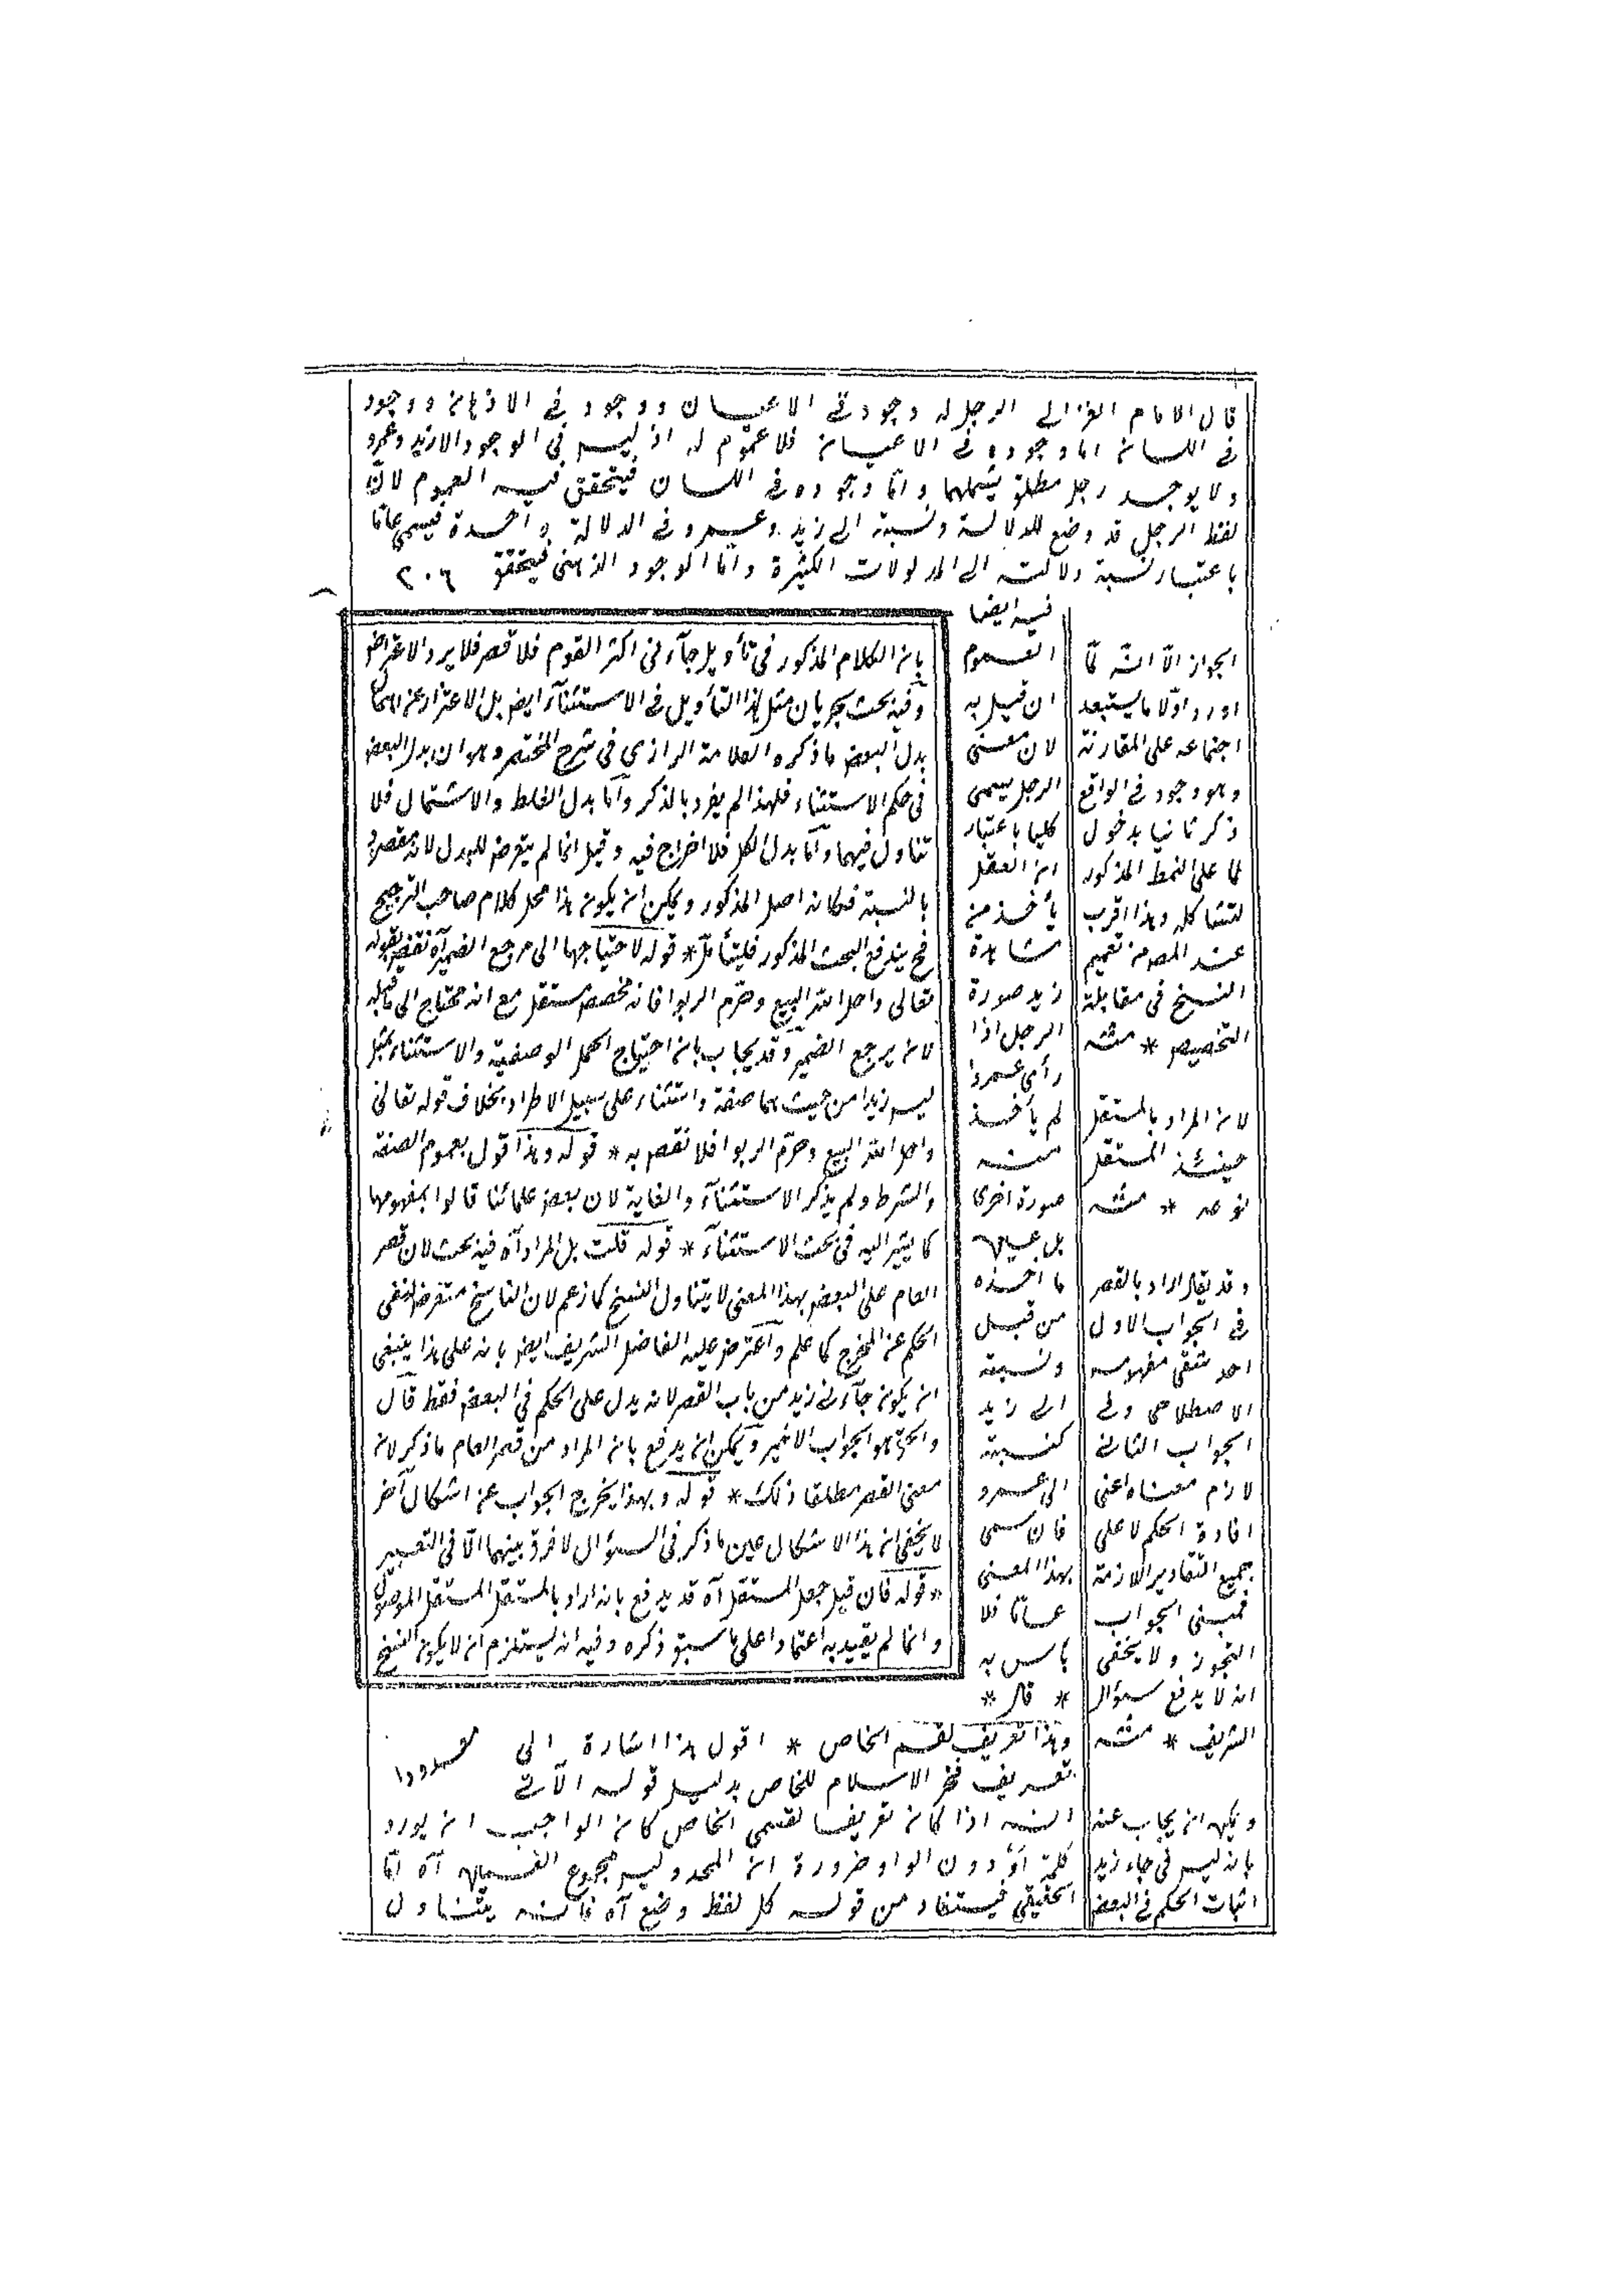 قال الامام الغزالي الرجل له وجود في الاعيان ووجود في الاذهان ووجود
في اللسان اما وجوده في الاعيان فلا عموم له اذ ليس في الوجود الا زيد وعمرو
ولا يوجد رجل مطلق يشملهما واما وجوده في اللسان فيتحقق فيه العموم لانّ
لفظ الرجل قد وضع للدلالة ونسبته الى زيد وعمرو في الدلالة واحدة فيسمى عامّا
باعتبار نسبة دلالته الى المدلولات الكثيرة وامّا الوجود الذهني فيتحقق ٢٠٦
فيه ايضا
العموم
ان قيل به
لان معنى
الرجل يسمى
كليا باعتبار
ان العقل
يأخذ من
مشاهدة
زيد صورة
الرجل اذا
رأى عمروا
لم يأخذ
منه
صورة اخرى
بل عين
ما اخذه
من قبل
ونسبته
الى زيد
كنسبته
الى عمرو
فان سمى
بهذا المعنى
عامّا فلا
بأس به
* قال *
وهذا تعريف لقسم الخاص * اقول هذا اشارة الى
تعريف فخر الاسلام للخاص بدليل قوله الآتى
انه اذا كان تعريفا لقسمى الخاص كان الواجب ان يورد
كلمة او دون الواو ضرورة ان المحدود ليس مجموع القسمين آه امّا
الحقيقى فيستفاد من قوله كل لفظ وضع آه فانه يتناول
بان الكلام المذكور في تأويل جآءنى اكثر القوم فلا قصر فلا يرد الاعتراض
وفيه بحث بجريان مثل هذا التأويل في الاستثنآء ايضا بل الاعتذار عن اهمال
بدل البعض ما ذكره العلامة الرازي في شرح المختصر وهو ان بدل البعض
في حكم الاستثناء فلهذا لم يفرد بالذكر وامّا بدل الغلط والاشتمال فلا
تناول فيهما وامّا بدل الكل فلا اخراج فيه وقيل انما لم يتعرض للبدل لانه مقصود
بالنسبة فكانه اصل المذكور ويمكن ان يكون هذا محل كلام صاحب الترجيح
فح يندفع البحث المذكور فليتأمّل * قوله لاحتياجهما الى مرجع الضمير آه نقض بقوله
تعالى واحل الله البيع وحرّم الربوا فانه مخصص مستقل مع انه محتاج الى ما قبله
لان يرجع الضمير وقد يجاب بان احتياج الجمل الوصفية والاستثناء بمثل
ليس زيدا من حيث هما صفة واستثناء على سبيل الاطراد بخلاف قوله تعالى
واحل الله البيع وحرّم الربوا فلا نقض به * قوله وهذا قول بعموم الصفة
والشرط ولم يذكر الاستثنآء والغاية لان بعض علمائنا قالوا بمفهومها
كما يشير اليه في بحث الاستثنآء * قوله قلت بل المراد آه فيه بحث لان قصر
العام على البعض بهذا المعنى لا يتناول النسخ كما زعم لان الناسخ متعرض لنفى
الحكم عن المخرج كما علم واعترض عليه الفاضل الشريف ايضا بانه على هذا ينبغى
ان يكون جآءنى زيد من باب القصر لانه يدل على الحكم في البعض فقط قال
والحق هو الجواب الاخير ويمكن ان يدفع بان المراد من قصر العام ما ذكر لان
معنى القصر مطلقا ذلك * قوله وبهذا يخرج الجواب عن اشكال آخر
لا يخفى ان هذا الاشكال عين ما ذكر في السؤال لا فرق بينهما الّا في التعبير
* قوله فان قيل جعل المستقل آه قد يدفع بانه اراد بالمستقل المستقل الموصول
وانما لم يقيد به اعتمادا على ما سبق ذكره وفيه انه يستلزم ان لا يكون النسخ
مقصودا
الجواز الّا انّه لمّا
اورد اوّلا ما يستبعد
اجتماعه على المقارنة
وهو وجود في الواقع
ذكر ثانيا بدخول
لما على النمط المذكور
لتشاكله وهذا اقرب
عند المص من تعميم
النسخ في مقابلة
التخصيص * منه
لان المراد بالمستقل
حينئذ المستقل
نوعه * منه
وقد يقال اراد بالقصر
في الجواب الاول
احد شقى مفهومه
الاصطلاحى وفى
الجواب الثانى
لازم معناه اعنى
افادة الحكم لا على
جميع التقادير اللازمة
فمبنى الجواب
التجوز ولا يخفى
انه لا يدفع سؤال
الشريف * منه
ويمكن ان يجاب عنه
بانه ليس في جاء زيد
اثبات الحكم في البعض